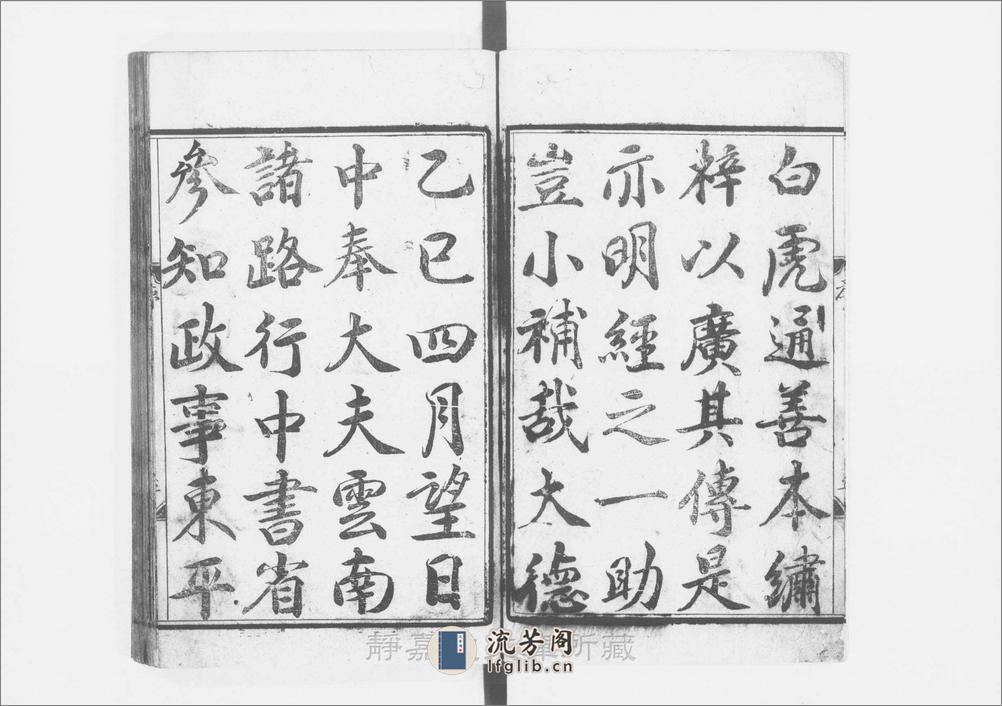 白虎通善本繡
梓以廣其傳是
亦明經之一助
豈小補哉大德
乙巳四月望日
中奉大夫雲南
諸路行中書省
參知政事東平
靜嘉
所藏
流芳阁
lfglib.cn